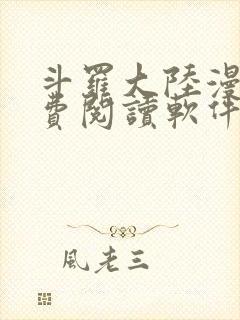 斗羅大陸漫
費閱讀軟件
風老三